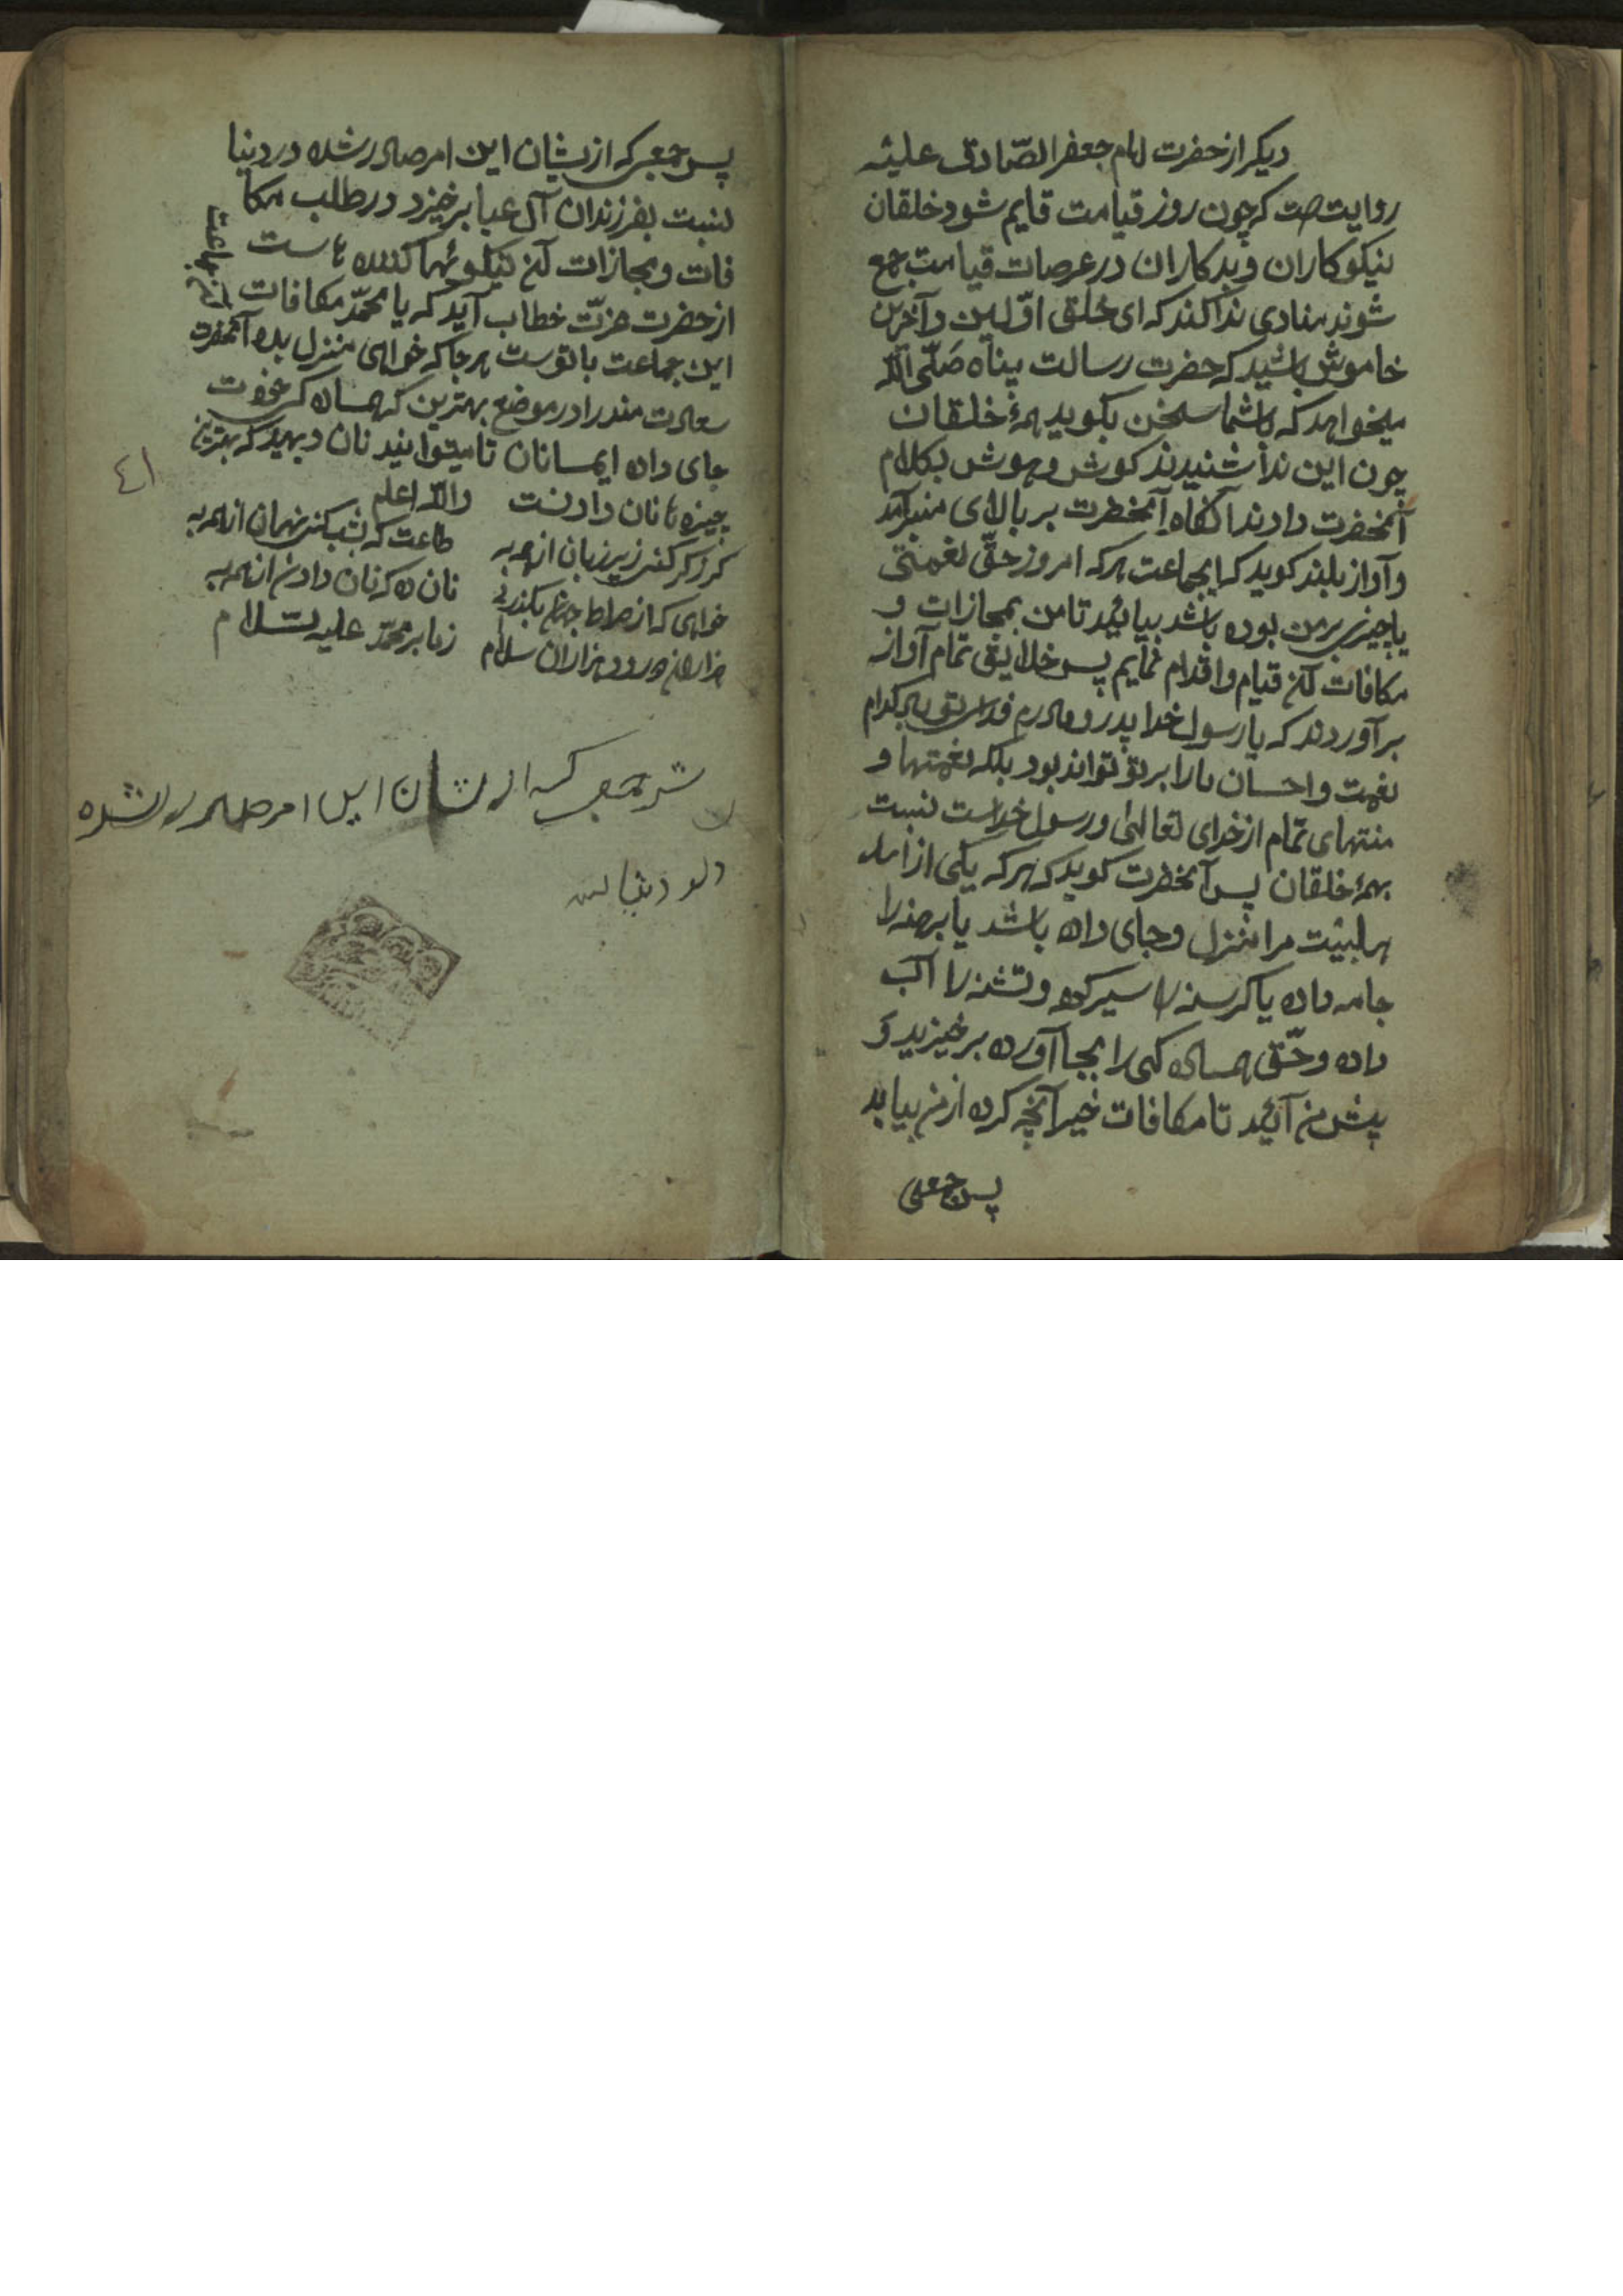 دیکر از حضرت امام جعفر الصّادق علیه
روایتست که چون روز قیامت قایم شود خلقان
نیکوکاران و بدکاران در عرصات قیامت جمع
شوند منادی ندا کند که ای خلق اوّلین و آخرین
خاموش باشید که حضرت رسالت پناه صَلّی اللّه
میخواهد که باشما سخن بکوید همهٔ خلقان
چون این ندا شنیدند کوش و هوش بکلام
آنحضرت دادند آنکاه آنحضرت بر بالای منبر آمد
و آواز بلند کوید که ایجماعت هر که امروز حقّ نعمتی
یا چیزی بر من بوده باشد بیائید تا من بمجازات و
مکافات آن قیام و اقدام نمایم پس خلایق تمام آواز
برآوردند که یا رسول خدا پدر و مادرم فدای تو باد کدام
نعمت و احسان ما را بر تو تواند بود بلکه نعمتها و
منتهای تمام از خدای تعالی و رسول خداست نسبت
بهمهٔ خلقان پس آنحضرت کوید که هر که یکی از
اهلبیت مرا منزل و جای داده باشد یا برهنه را
جامه داده یا کرسنه را سیر کرده و تشنه را آب
داده و حقّ همسایه کی را بجا آورده برخیزید و
پیش من آئید تا مکافات خیر آنچه کرده از من بیابد
پس جمعی
پس جمعی که ازیشان این امر صادر شده در دنیا
نسبت بفرزندان آل عبا برخیزد در طلب مکا
فات و مجازات آن نیکوئیها کننده است
از حضرت عزّت خطاب آید که یا محمّد مکافات
این جماعت
این جماعت باتوست هر جا که خواهی منزل بده آنحضرت
سعادت مند را در موضع بهترین که همسایه
جای داده ایمسانان تا میتوانید نان دهید که بهترین
چیزها نان دادنست والله اعلم
کر ذکر کنی زیر زبان از همه به طاعت که بشب کنی نهان از همه به
خواهی که از صراط بکذری نان ده که نان دادن از همه به
هزاران درود هزاران سلام زما بر محمّد علیه السّلام
٤١
که ازیشان این امر صادر شده